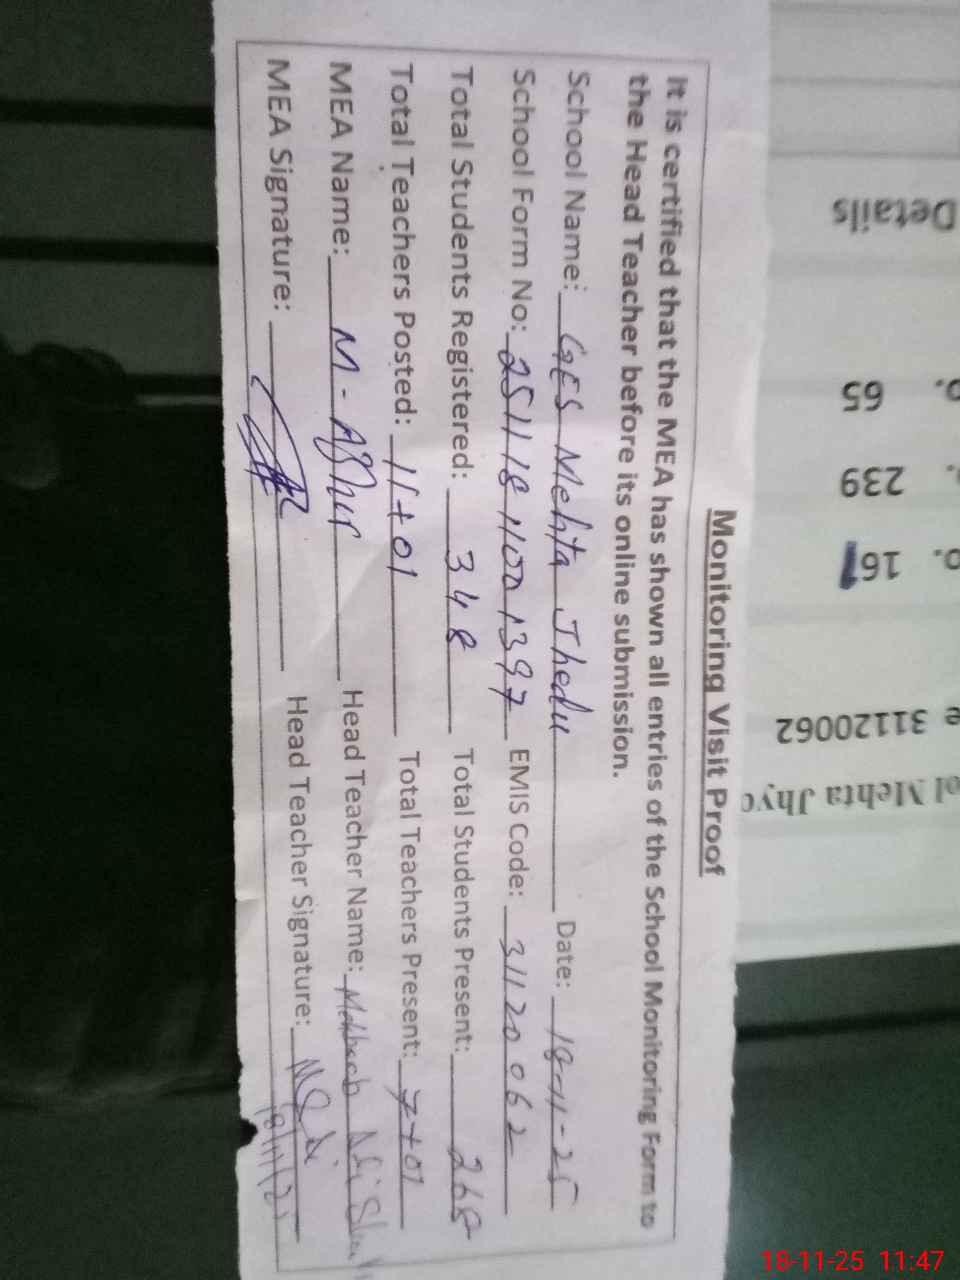 Monitoring Visit Proof
It is certified that the MEA has shown all entries of the School Monitoring Form to
the Head Teacher before its online submission.
School Name: GES Mehta Jhedu Date: 18-11-25
School Form No: 25111811001397 EMIS Code: 31120062
Total Students Registered: 348 Total Students Present: 268
Total Teachers Posted: 11+01 Total Teachers Present: 7+01
MEA Name: M-Asher Head Teacher Name:
MEA Signature: Head Teacher Signature:
18/11/25
Details
65
239
16
e 31120062
ol Mehta Jhyo
18-11-25 11:47